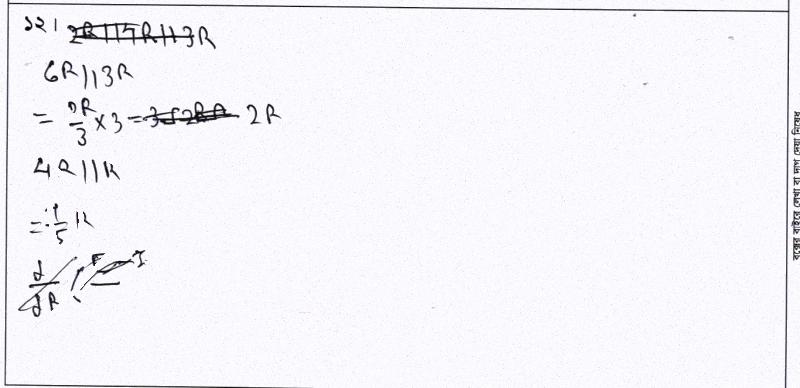 ১২।
6R||3R
= 2R/3 × 3 = 2R
4R||R
= 4/5 R
বক্সের বাইরে লেখা বা দাগ দেয়া নিষেধ